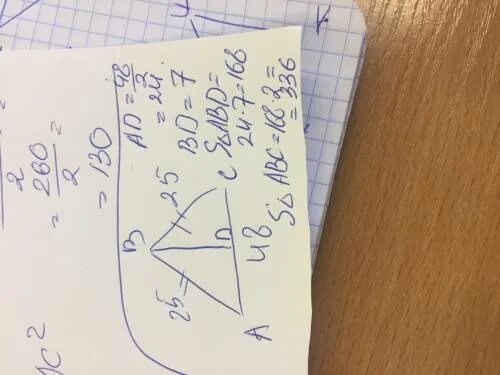 2
= 260 =
2
= 130
B
25
25
A
D
C
48
AD = 48
2
= 24.
BD = 7
S△ABD =
24 · 7 = 168
S△ABC = 168 · 2 =
= 336